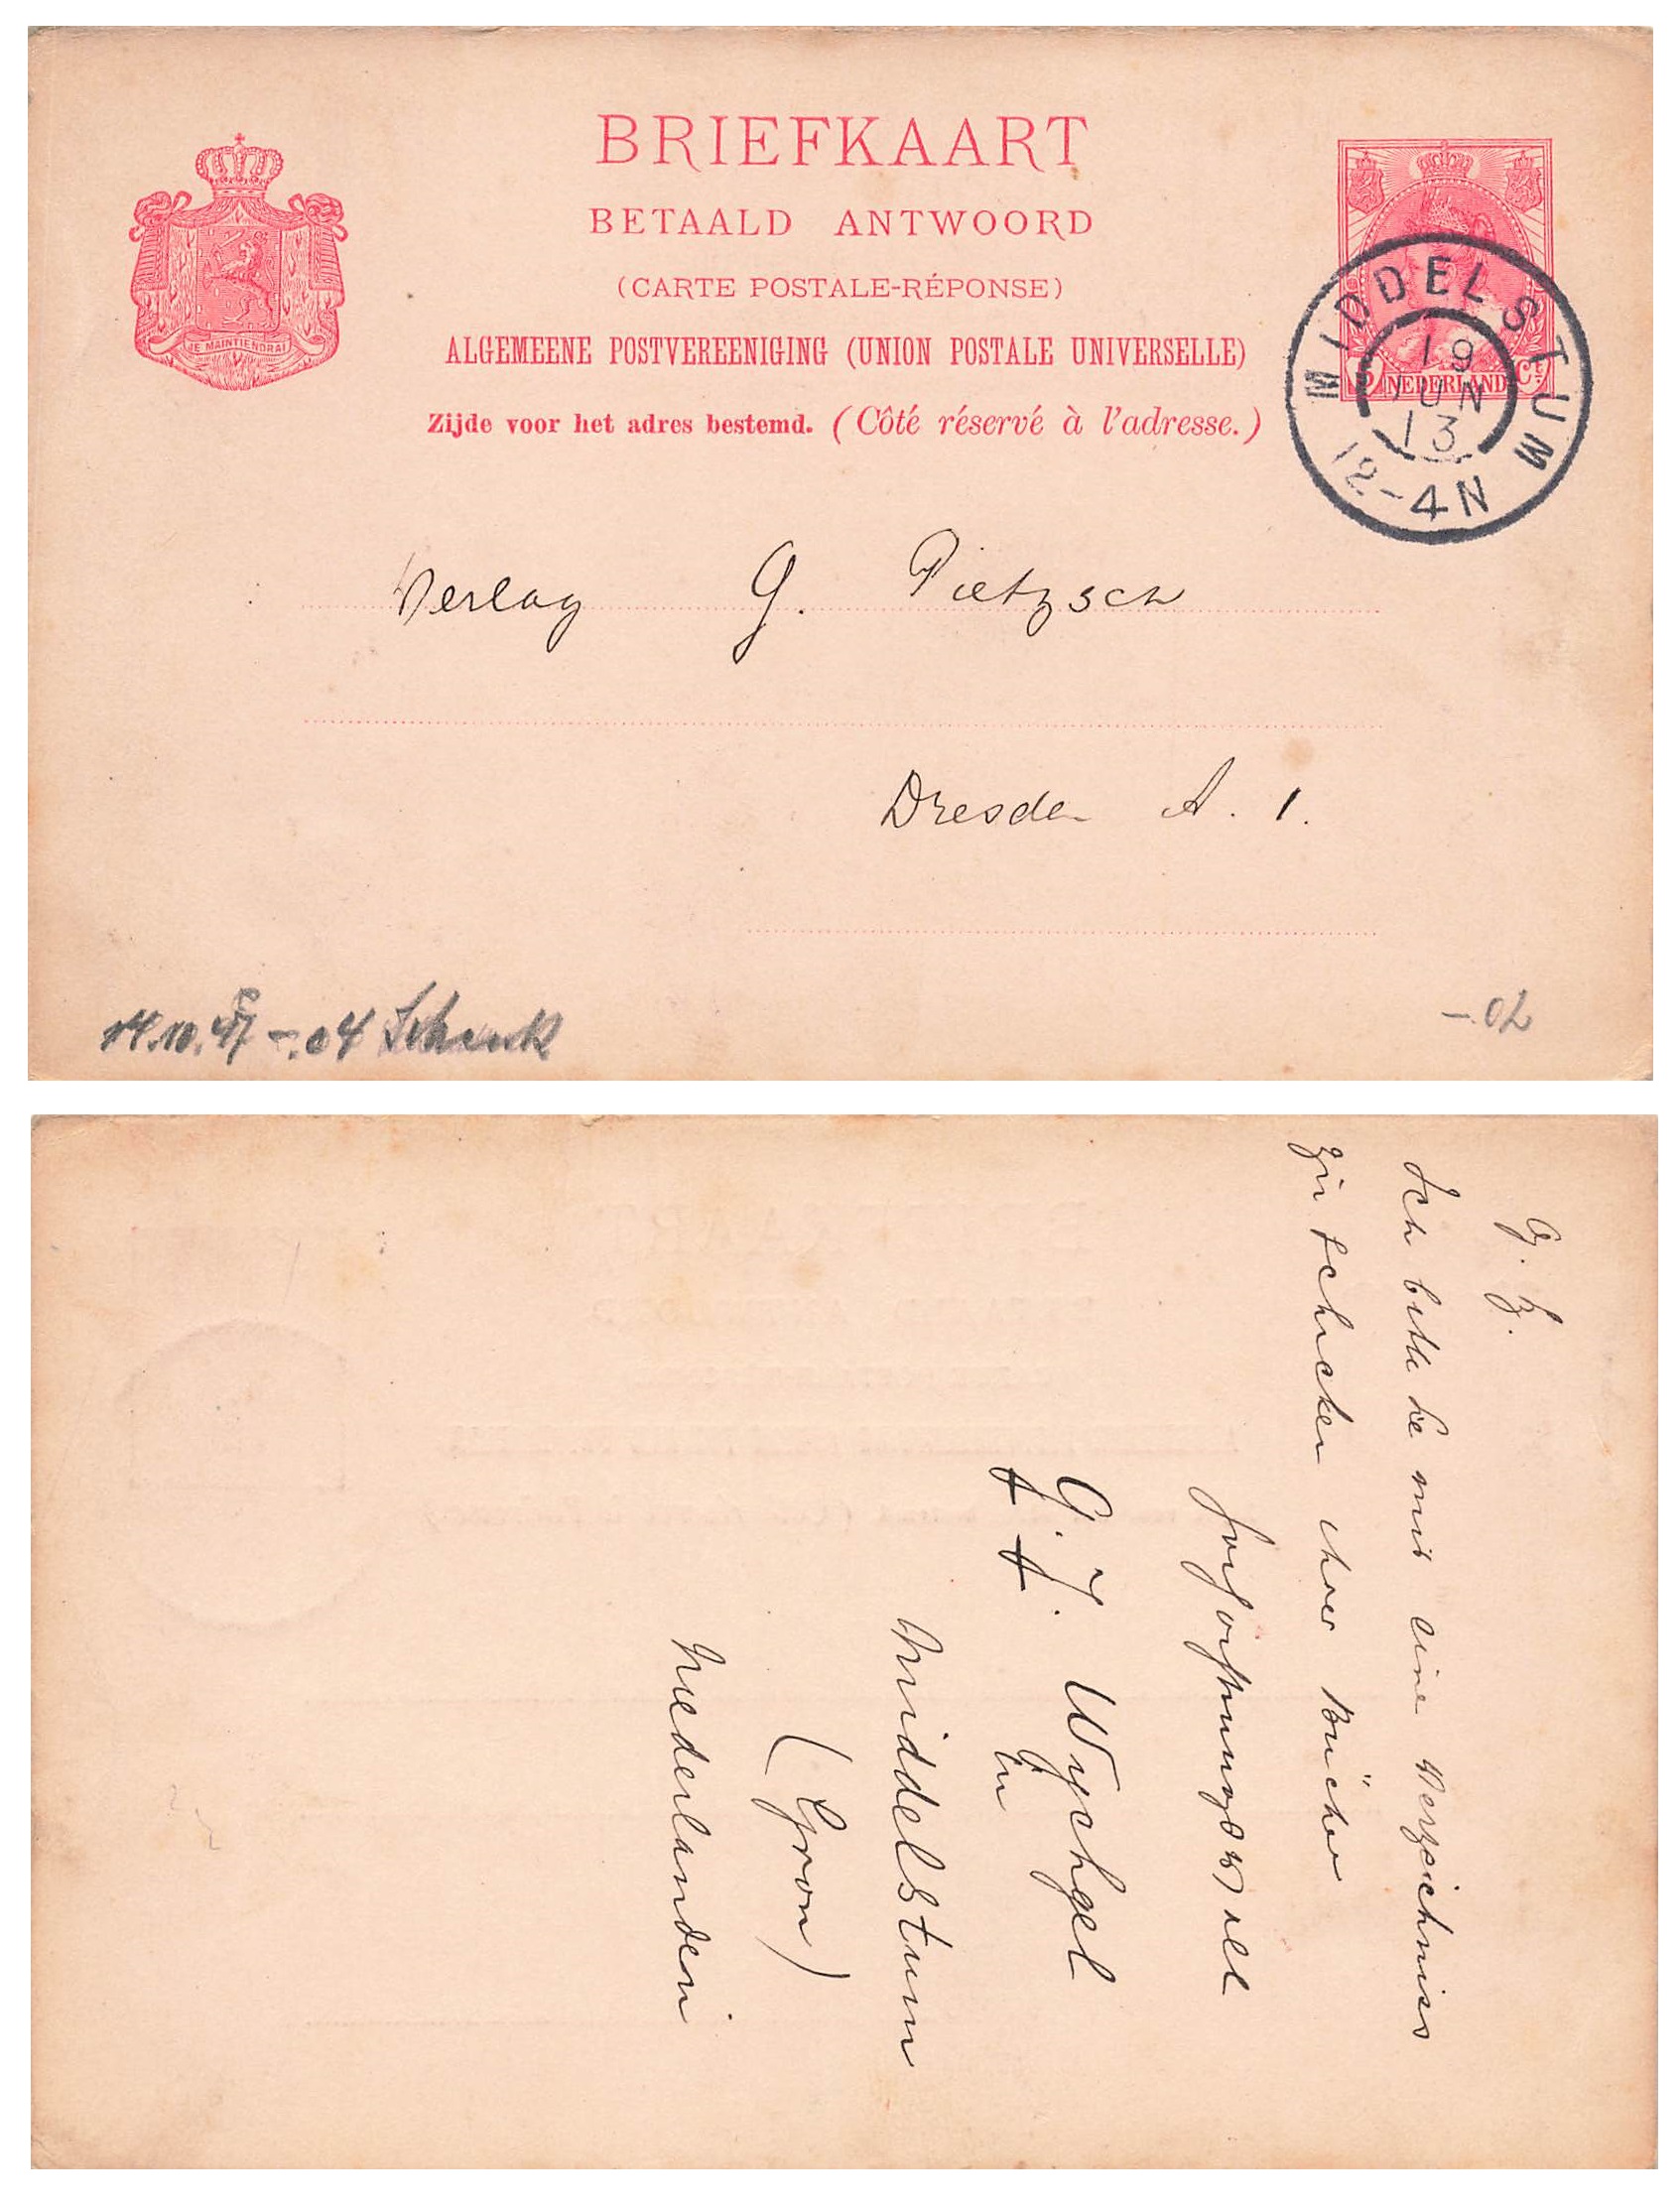 BRIEFKAART
BETAALD ANTWOORD
(CARTE POSTALE-RÉPONSE)
ALGEMEENE POSTVEREENIGING (UNION POSTALE UNIVERSELLE)
Zijde voor het adres bestemd. (Côté réservé à l'adresse.)
JE MAINTIENDRAI
5 NEDERLAND Ct
MIDDELSTUM
19
JUN
13
12-4N
Verlag G. Pietzsch
Dresden A. 1.
14.10.47 -.04 Schenk
-.02
G. Z.
Ich bitte Sie mir eine Verzeichniss
zu schicken ihrer Bücher
Hochachtungsvoll
G. J. Wychgel
Middelstum
(Gron)
Niederlanden